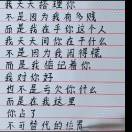 我天天搭理你
不是因为我有多贱
而是我在乎你这个人
我天天问你在干什么
不是因为我闲得慌
而是我惦记着你
我对你好
也不是亏欠你什么
而是在我这里
你占了
不可替代的位置